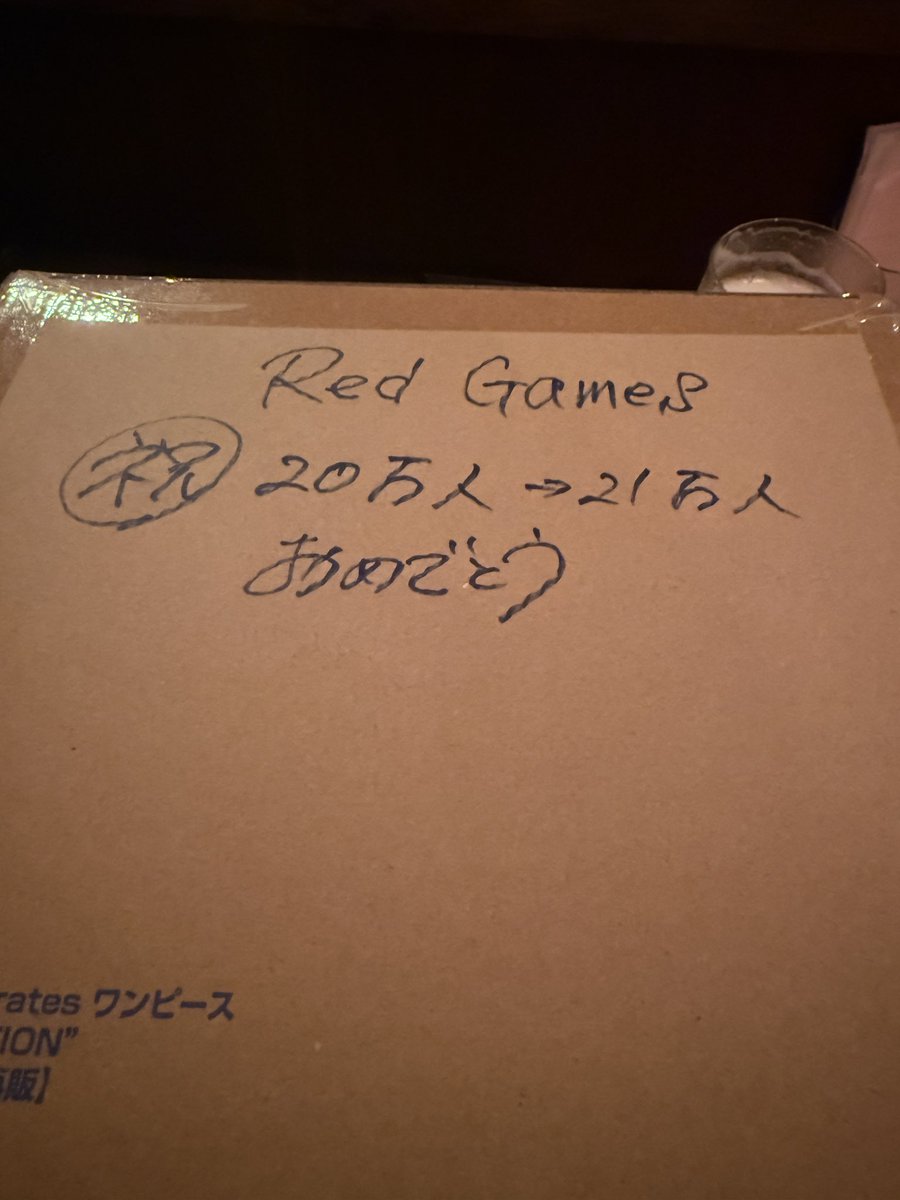 Red Games
祝 20万人→21万人
おめでとう
rates ワンピース
ION”
販】